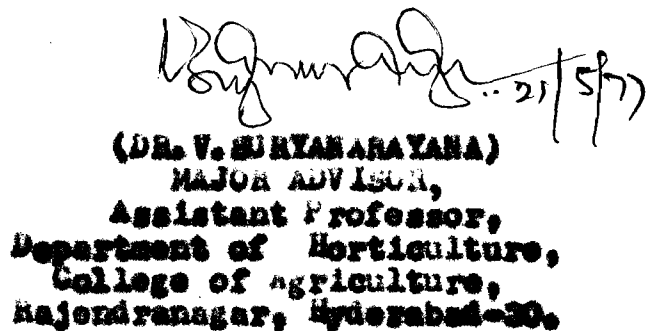 21/5/77
(DR. V. SURYANARAYANA)
MAJOR ADVISOR,
Assistant Professor,
Department of Horticulture,
College of Agriculture,
Rajendranagar, Hyderabad-30.